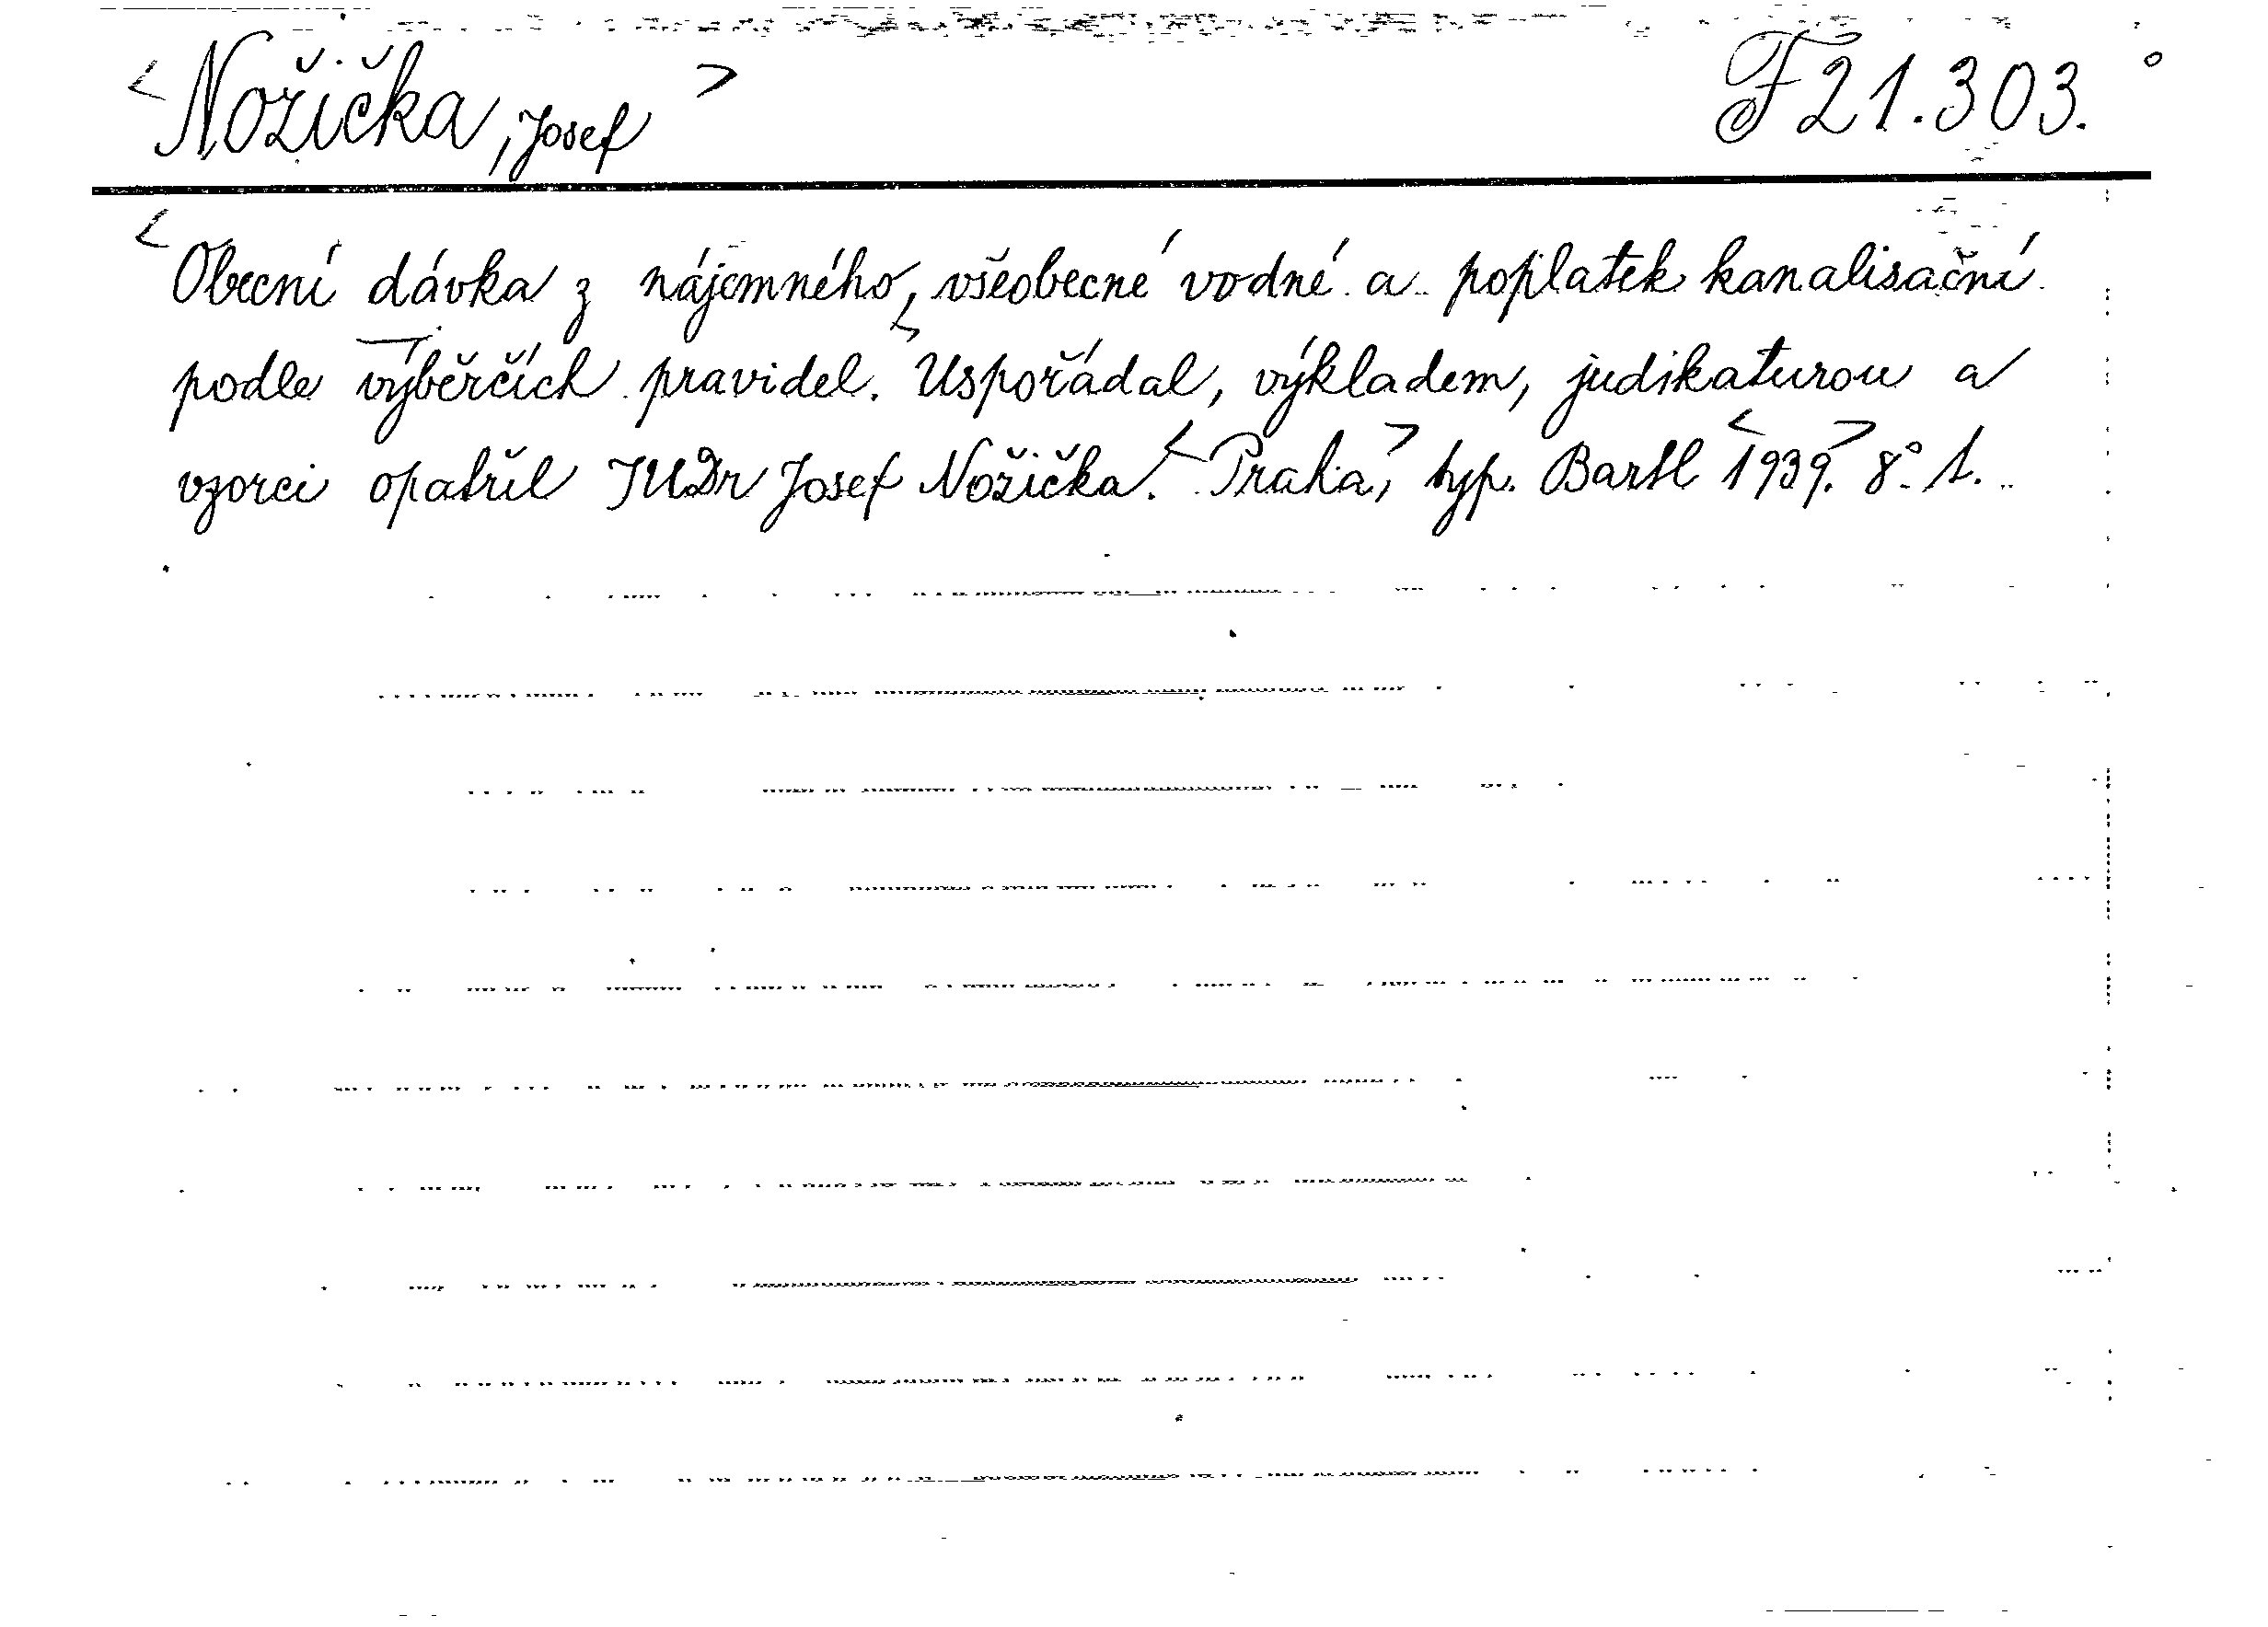 <Nožička, Josef> F 21.303.
<Obecní dávka z nájemného, všeobecné vodné a poplatek kanalisační
podle výběrčích pravidel. Uspořádal, výkladem, judikaturou a
vzorci opatřil JUDr Josef Nožička. <Praha,> typ. Bartl <1939.> 8°. 1.